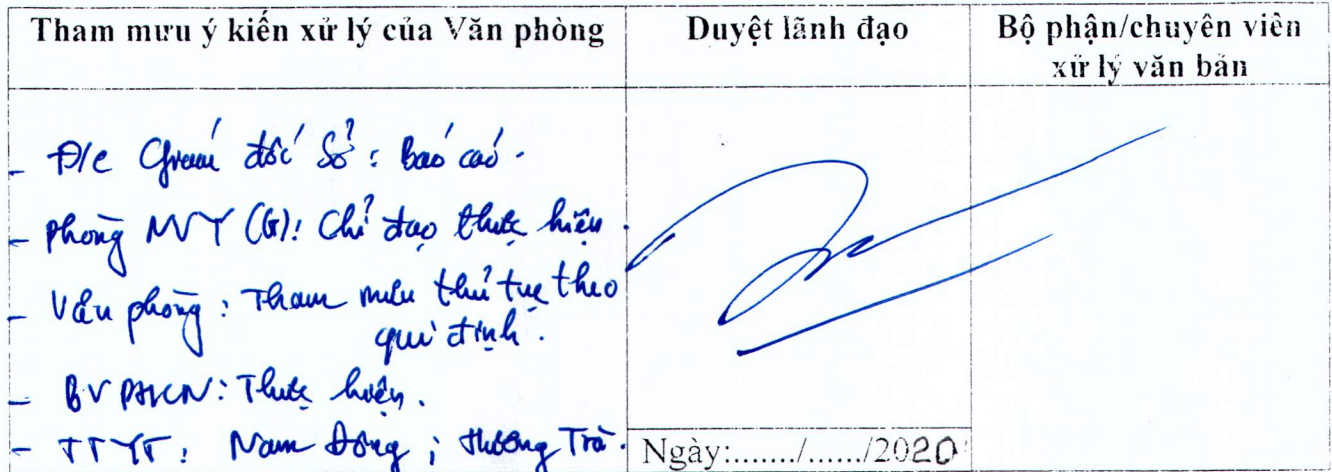 Tham mưu ý kiến xử lý của Văn phòng
Duyệt lãnh đạo
Bộ phận/chuyên viên
xử lý văn bản
- Đ/c Giám đốc Sở : Báo cáo.
- Phòng NVY (G): Chỉ đạo thực hiện.
- Văn phòng : Tham mưu thủ tục theo
qui định.
- BV PHCN: Thực hiện.
- TTYT: Nam Đông ; Hương Trà.
Ngày:......./....../2020